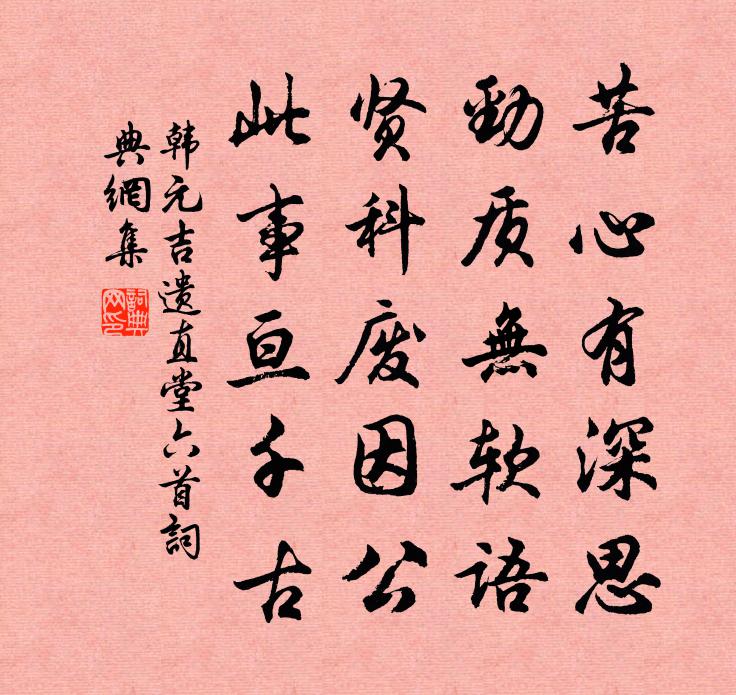 苦心有深思
勁质無软语
贤科废因公
此事亘千古
韩元吉遗直堂六首詞
典網集
詞典网印